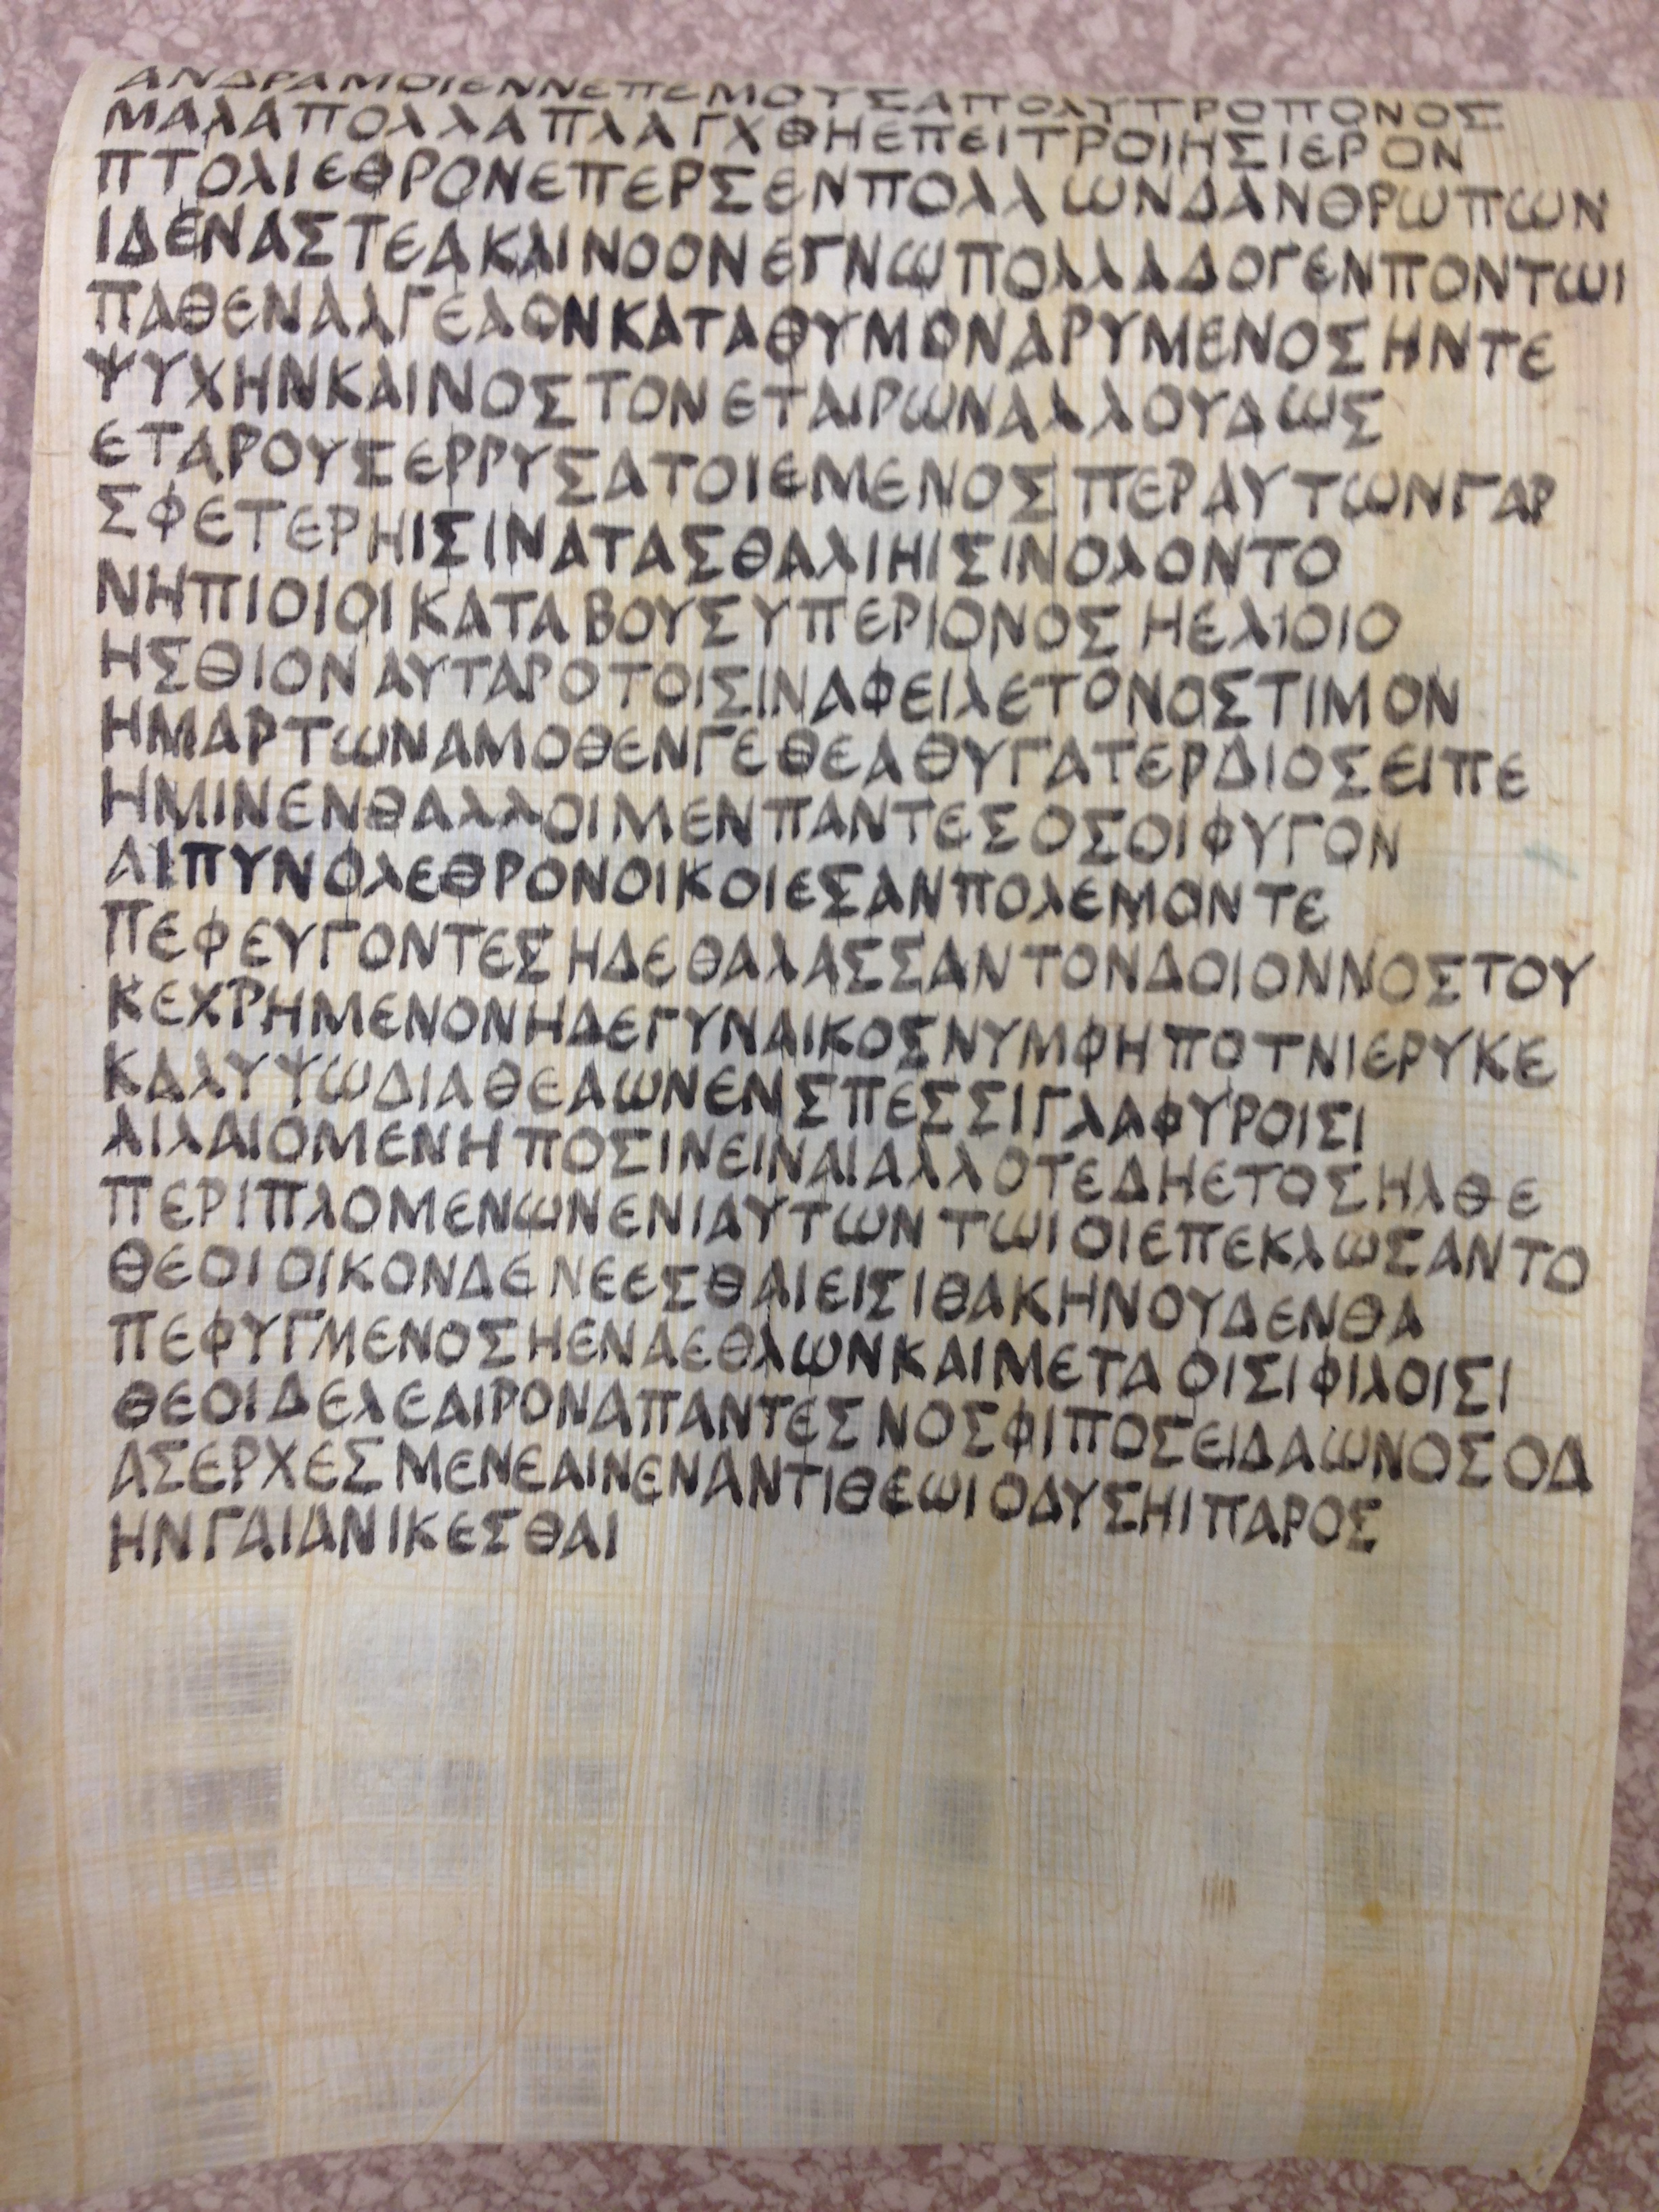 ΑΝΔΡΑΜΟΙΕΝΝΕΠΕΜΟΥΣΑΠΟΛΥΤΡΟΠΟΝΟΣ
ΜΑΛΑΠΟΛΛΑΠΛΑΓΧΘΗΕΠΕΙΤΡΟΙΗΣΙΕΡΟΝ
ΠΤΟΛΙΕΘΡΟΝΕΠΕΡΣΕΝΠΟΛΛΩΝΔΑΝΘΡΩΠΩΝ
ΙΔΕΝΑΣΤΕΑΚΑΙΝΟΟΝΕΓΝΩΠΟΛΛΑΔΟΓΕΝΠΟΝΤΩΙ
ΠΑΘΕΝΑΛΓΕΑΟΝΚΑΤΑΘΥΜΟΝΑΡΥΜΕΝΟΣΗΝΤΕ
ΨΥΧΗΝΚΑΙΝΟΣΤΟΝΕΤΑΙΡΩΝΑΛΛΟΥΔΩΣ
ΕΤΑΡΟΥΣΕΡΡΥΣΑΤΟΙΕΜΕΝΟΣΠΕΡΑΥΤΩΝΓΑΡ
ΣΦΕΤΕΡΗΙΣΙΝΑΤΑΣΘΑΛΙΗΙΣΙΝΟΛΟΝΤΟ
ΝΗΠΙΟΙΟΙΚΑΤΑΒΟΥΣΥΠΕΡΙΟΝΟΣΗΕΛΙΟΙΟ
ΗΣΘΙΟΝΑΥΤΑΡΟΤΟΙΣΙΝΑΦΕΙΛΕΤΟΝΟΣΤΙΜΟΝ
ΗΜΑΡΤΩΝΑΜΟΘΕΝΓΕΘΕΑΘΥΓΑΤΕΡΔΙΟΣΕΙΠΕ
ΗΜΙΝΕΝΘΑΛΛΟΙΜΕΝΠΑΝΤΕΣΟΣΟΙΦΥΓΟΝ
ΑΙΠΥΝΟΛΕΘΡΟΝΟΙΚΟΙΕΣΑΝΠΟΛΕΜΟΝΤΕ
ΠΕΦΕΥΓΟΝΤΕΣΗΔΕΘΑΛΑΣΣΑΝΤΟΝΔΟΙΟΝΝΟΣΤΟΥ
ΚΕΧΡΗΜΕΝΟΝΗΔΕΓΥΝΑΙΚΟΣΝΥΜΦΗΠΟΤΝΙΕΡΥΚΕ
ΚΑΛΥΨΩΔΙΑΘΕΑΩΝΕΝΣΠΕΣΣΙΓΛΑΦΥΡΟΙΣΙ
ΛΙΛΑΙΟΜΕΝΗΠΟΣΙΝΕΙΝΑΙΑΛΛΟΤΕΔΗΕΤΟΣΗΛΘΕ
ΠΕΡΙΠΛΟΜΕΝΩΝΕΝΙΑΥΤΩΝΤΩΙΟΙΕΠΕΚΛΩΣΑΝΤΟ
ΘΕΟΙΟΙΚΟΝΔΕΝΕΕΣΘΑΙΕΙΣΙΘΑΚΗΝΟΥΔΕΝΘΑ
ΠΕΦΥΓΜΕΝΟΣΗΕΝΑΕΘΛΩΝΚΑΙΜΕΤΑΟΙΣΙΦΙΛΟΙΣΙ
ΘΕΟΙΔΕΛΕΑΙΡΟΝΑΠΑΝΤΕΣΝΟΣΦΙΠΟΣΕΙΔΑΩΝΟΣΟΔ
ΑΣΕΡΧΕΣΜΕΝΕΑΙΝΕΝΑΝΤΙΘΕΩΙΟΔΥΣΗΙΠΑΡΟΣ
ΗΝΓΑΙΑΝΙΚΕΣΘΑΙ